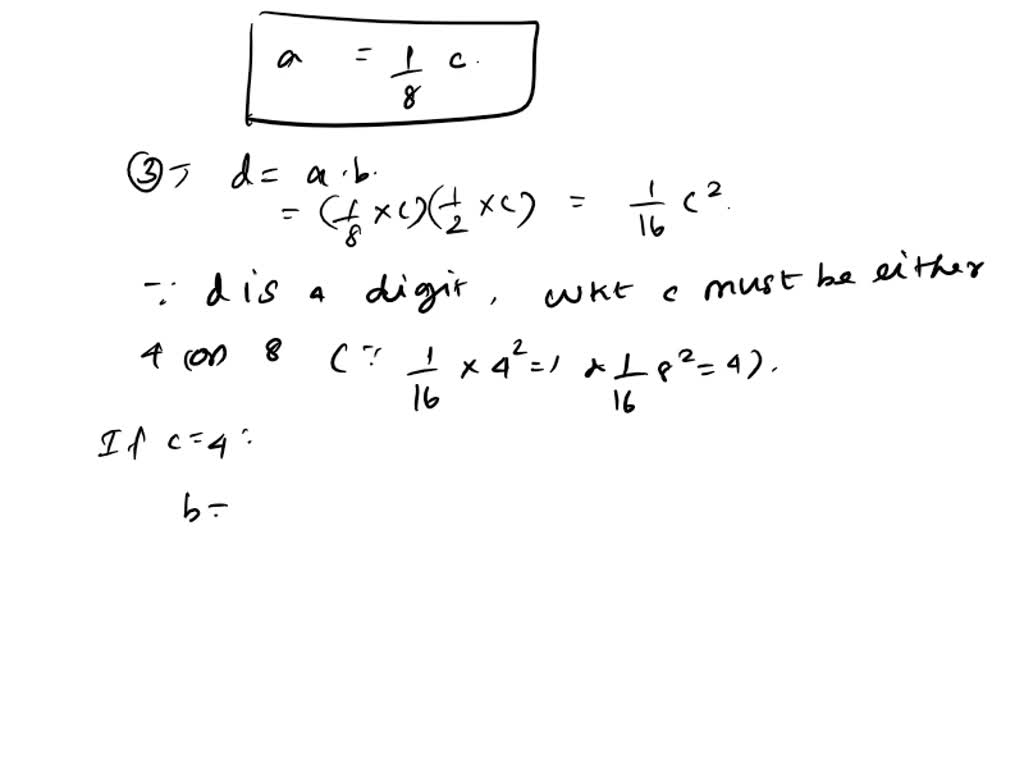 a = 1/8 c.
③ ⇒ d = a · b.
= (1/8 × c)(1/2 × c) = 1/16 c².
∵ d is a digit, WKT c must be either
4 (or) 8 (∵ 1/16 × 4² = 1, & 1/16 8² = 4).
If c = 4 :
b =